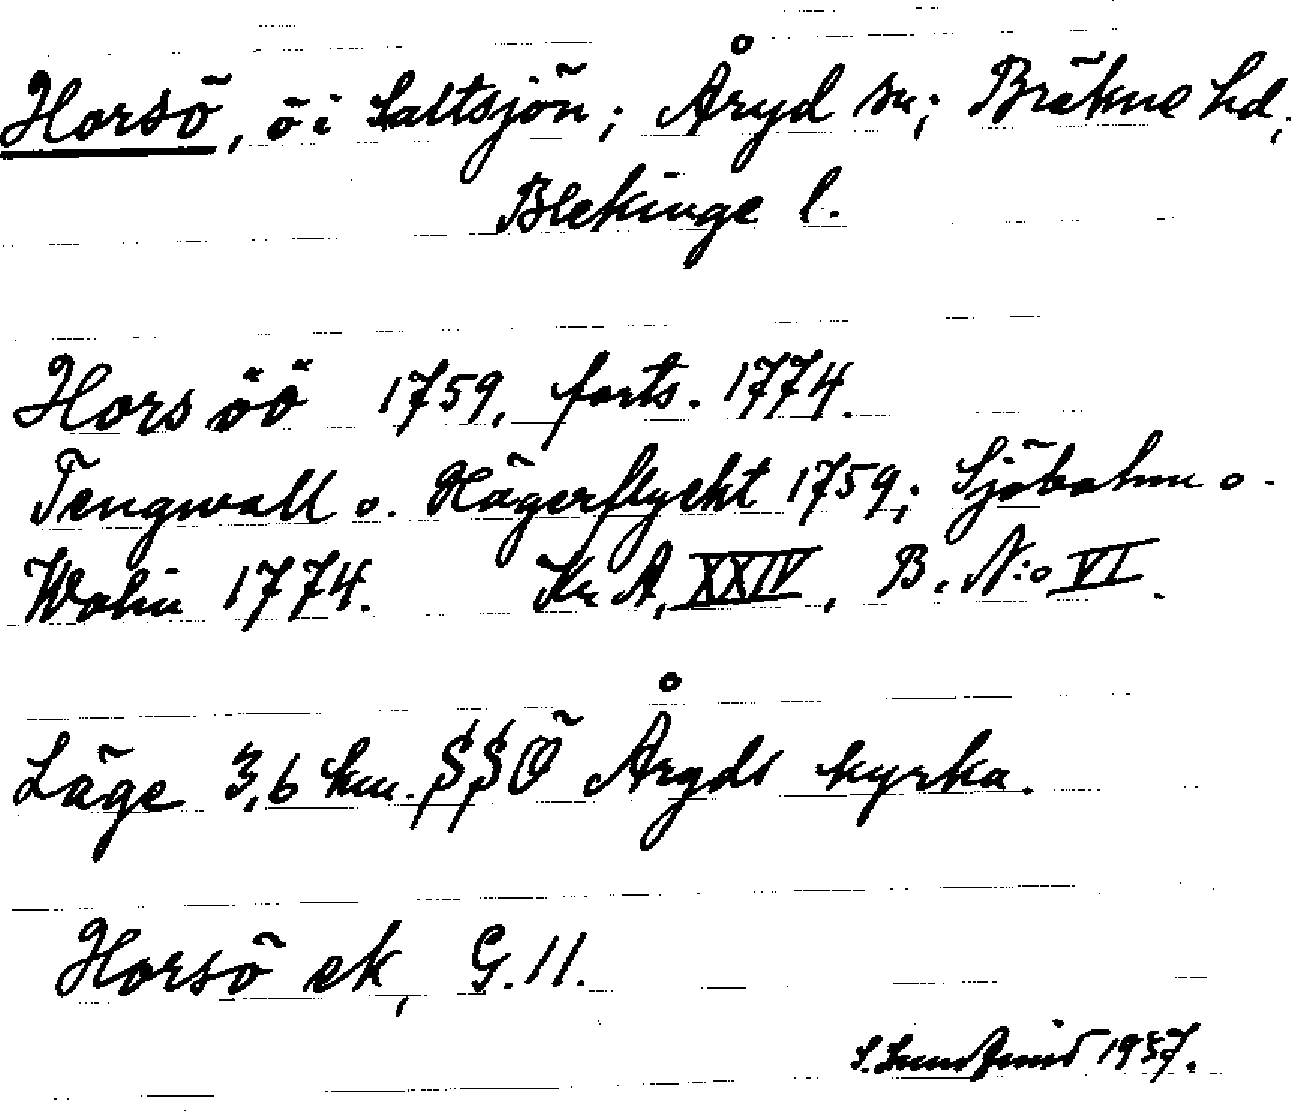 Horsö, ö i Saltsjön; Åryd sn; Bräkne hd,
Blekinge l.
Horsöö 1759, forts. 1774.
Tengwall o. Hägerflycht 1759; Sjöbohm o.
Wohin 1774. Kr A, XXIV, B. N:o VI.
Läge 3,6 km. SSÖ Åryds kyrka.
Horsö ek, G. 11.
S. 1957.